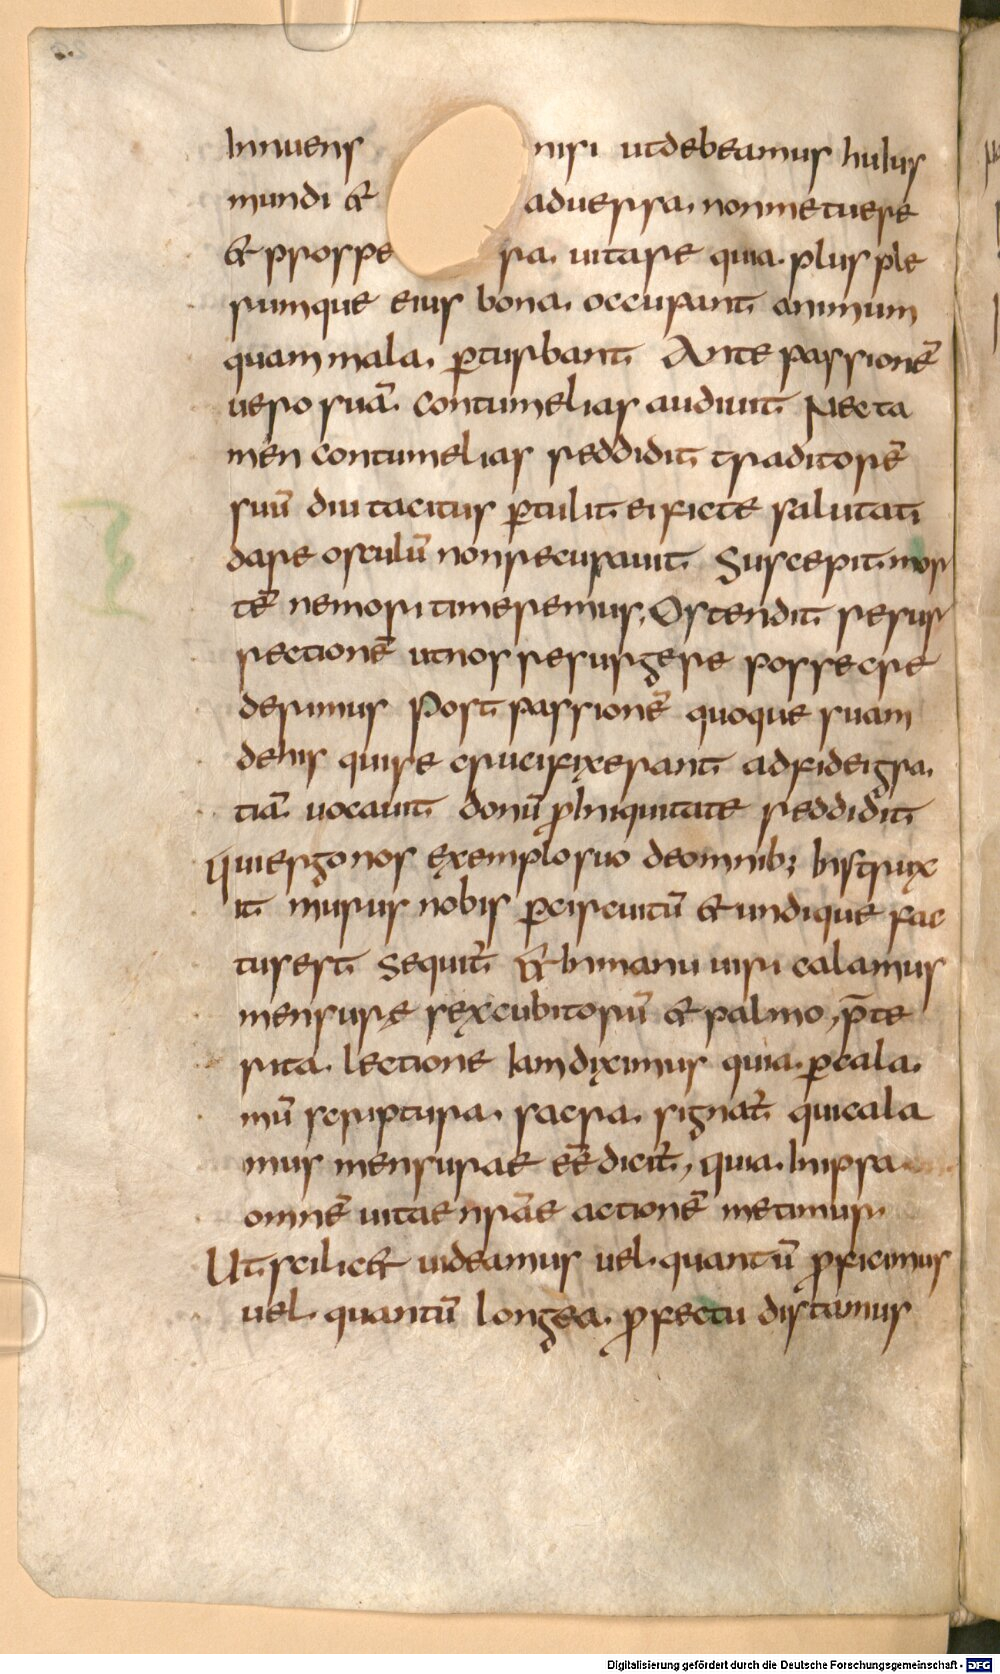 Innuens nisi utdebeamus huius
mundi & aduersa. nonmetuere
& prospe ra. uitare quia. plus ple
rumque eius bona. occupant animum
quam mala. p̲turbant Ante passionē
uero suā. contumelias audiuit Necta
men contumelias reddidit traditorē
suū diu tacitus p̲tulit ei ficte salutati
dare osculū nonrecusauit Suscepit mor
tē nemori timeremus. Ostendit resur
rectionē utnos resurgere posse cre
derimus Post passionē quoque suam
dehis quise crucifixerant adfidei gra.
tiā uocauit donū p̲ Iniquitate reddidit
Quiergo nos exemplo suo deomnib; Instrux
it murus nobis p̲circuitū & undique fac
tusest Sequit̄ & Inmanu uiri calamus
mensurę sexcubitorū & palmo, p̄te
rita. lectione Iam diximus quia. p̲cala.
mū scriptura. sacra. signat̄ quicala
mus mensurae eē dicit̄, quia. Inipsa
omnē uitae nrāe actionē metimur.
Ut scilic& uideamus uel. quantū p̲ficimus
uel. quantū longea. p̲fectu distamus
Digitalisierung gefördert durch die Deutsche Forschungsgemeinschaft - DFG